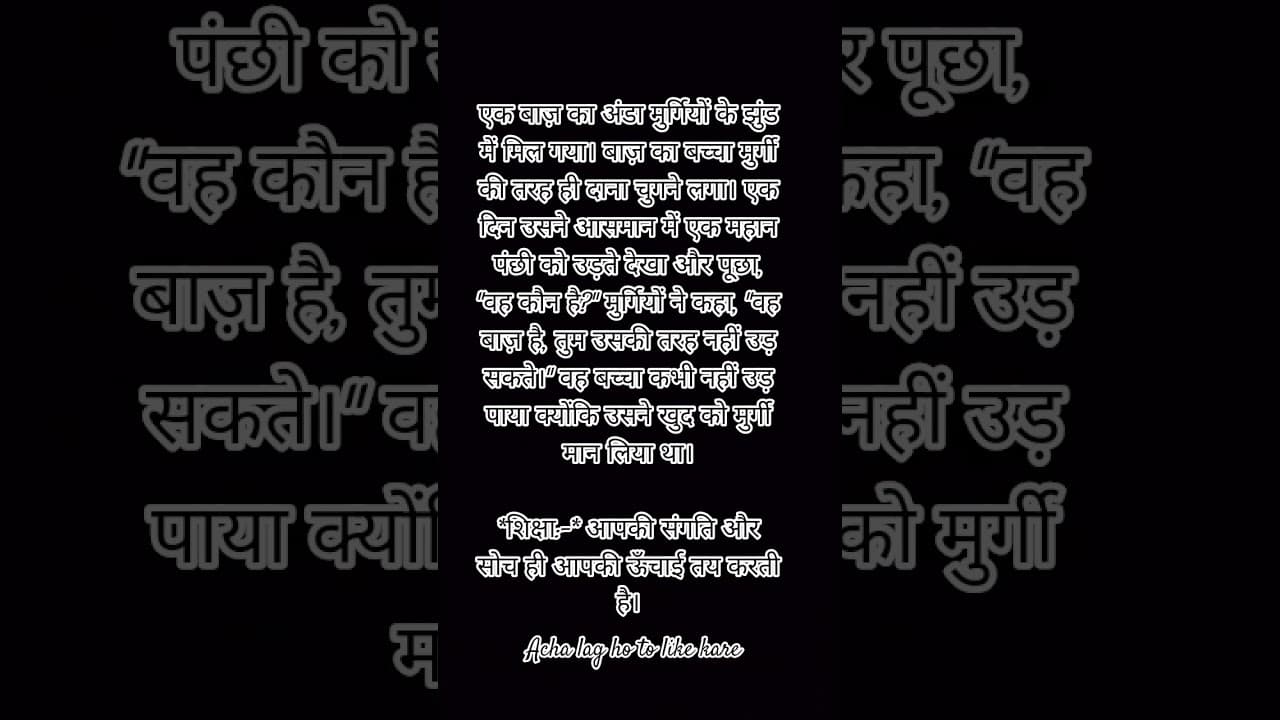 एक बाज़ का अंडा मुर्गियों के झुंड
में मिल गया। बाज़ का बच्चा मुर्गी
की तरह ही दाना चुगने लगा। एक
दिन उसने आसमान में एक महान
पंछी को उड़ते देखा और पूछा,
"वह कौन है?" मुर्गियों ने कहा, "वह
बाज़ है, तुम उसकी तरह नहीं उड़
सकते।" वह बच्चा कभी नहीं उड़
पाया क्योंकि उसने खुद को मुर्गी
मान लिया था।
*शिक्षा:-* आपकी संगति और
सोच ही आपकी ऊँचाई तय करती
है।
Acha lag ho to like kare